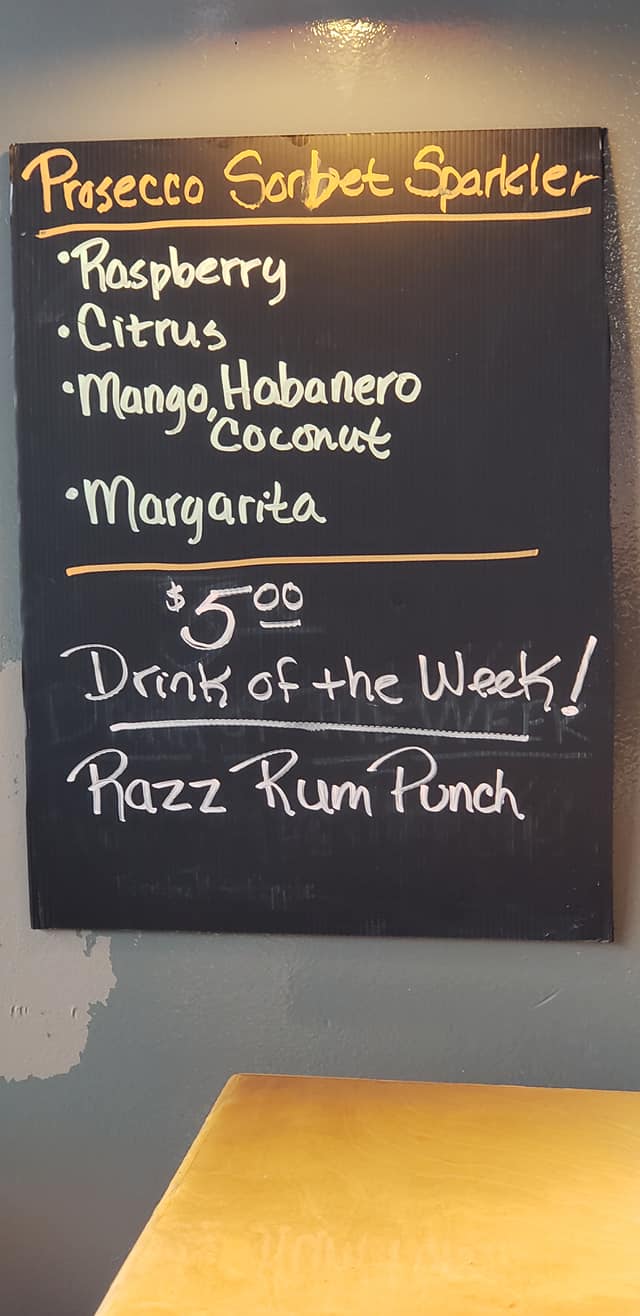 Prosecco Sorbet Sparkler
•Raspberry
•Citrus
•Mango, Habanero
Coconut
•Margarita
$5.00
Drink of the Week!
Razz Rum Punch